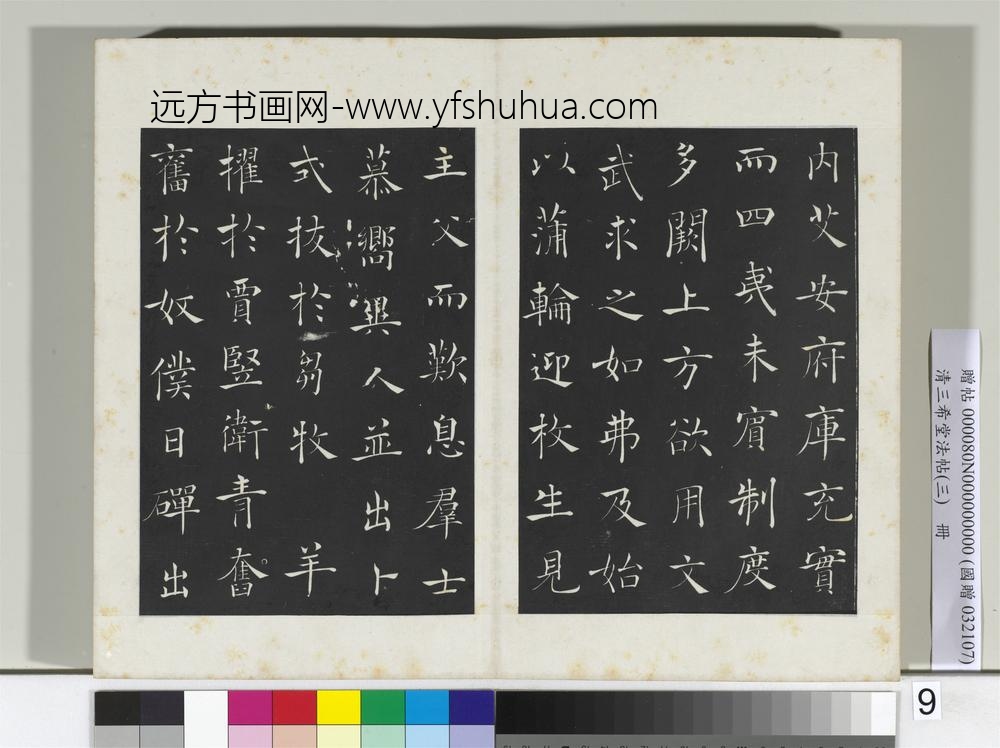 远方书画网-www.yfshuhua.com
内艾安府庫充實
而四夷未賓制度
多闕上方欲用文
武求之如弗及始
以蒲輪迎枚生見
主父而歎息羣士
慕嚮異人並出卜
式拔於芻牧羊
擢於賈豎衛青奮
舊於奴僕日磾出
贈帖 000080N000000000 (國贈 032107)
清三希堂法帖(三) 冊
9